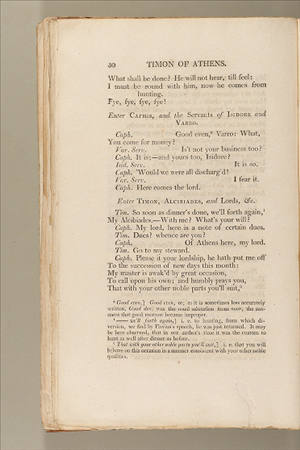 30 TIMON OF ATHENS.
What shall be done? He will not hear, till feel:
I must be round with him, now he comes from
hunting.
Fye, fye, fye, fye!
Enter CAPHIS, and the Servants of ISIDORE and
VARRO.
Caph. Good even,⁸ Varro: What,
You come for money?
Var. Serv. Is't not your business too?
Caph. It is;—and yours too, Isidore?
Isid. Serv. It is so.
Caph. 'Would we were all discharg'd!
Var. Serv. I fear it.
Caph. Here comes the lord.
Enter TIMON, ALCIBIADES, and Lords, &c.
Tim. So soon as dinner's done, we'll forth again,
My Alcibiades.—With me? What's your will?
Caph. My lord, here is a note of certain dues.
Tim. Dues? whence are you?
Caph. Of Athens here, my lord.
Tim. Go to my steward.
Caph. Please it your lordship, he hath put me off
To the succession of new days this month:
My master is awak'd by great occasion,
To call upon his own; and humbly prays you,
That with your other noble parts you'll suit,
Good even,] Good even, or, as it is sometimes less accurately
written, Good den, was the usual salutation from noon, the
moment that good morrow became improper.
—— we'll forth again,] i. e. to hunting, from which
diversion, we find by Flavius's speech, he was just returned. It may
be here observed, that in our author's time it was the custom to
hunt as well after dinner as before.
That with your other noble parts you'll suit,] i. e. that you will
behave on this occasion in a manner consistent with your other noble
qualities.